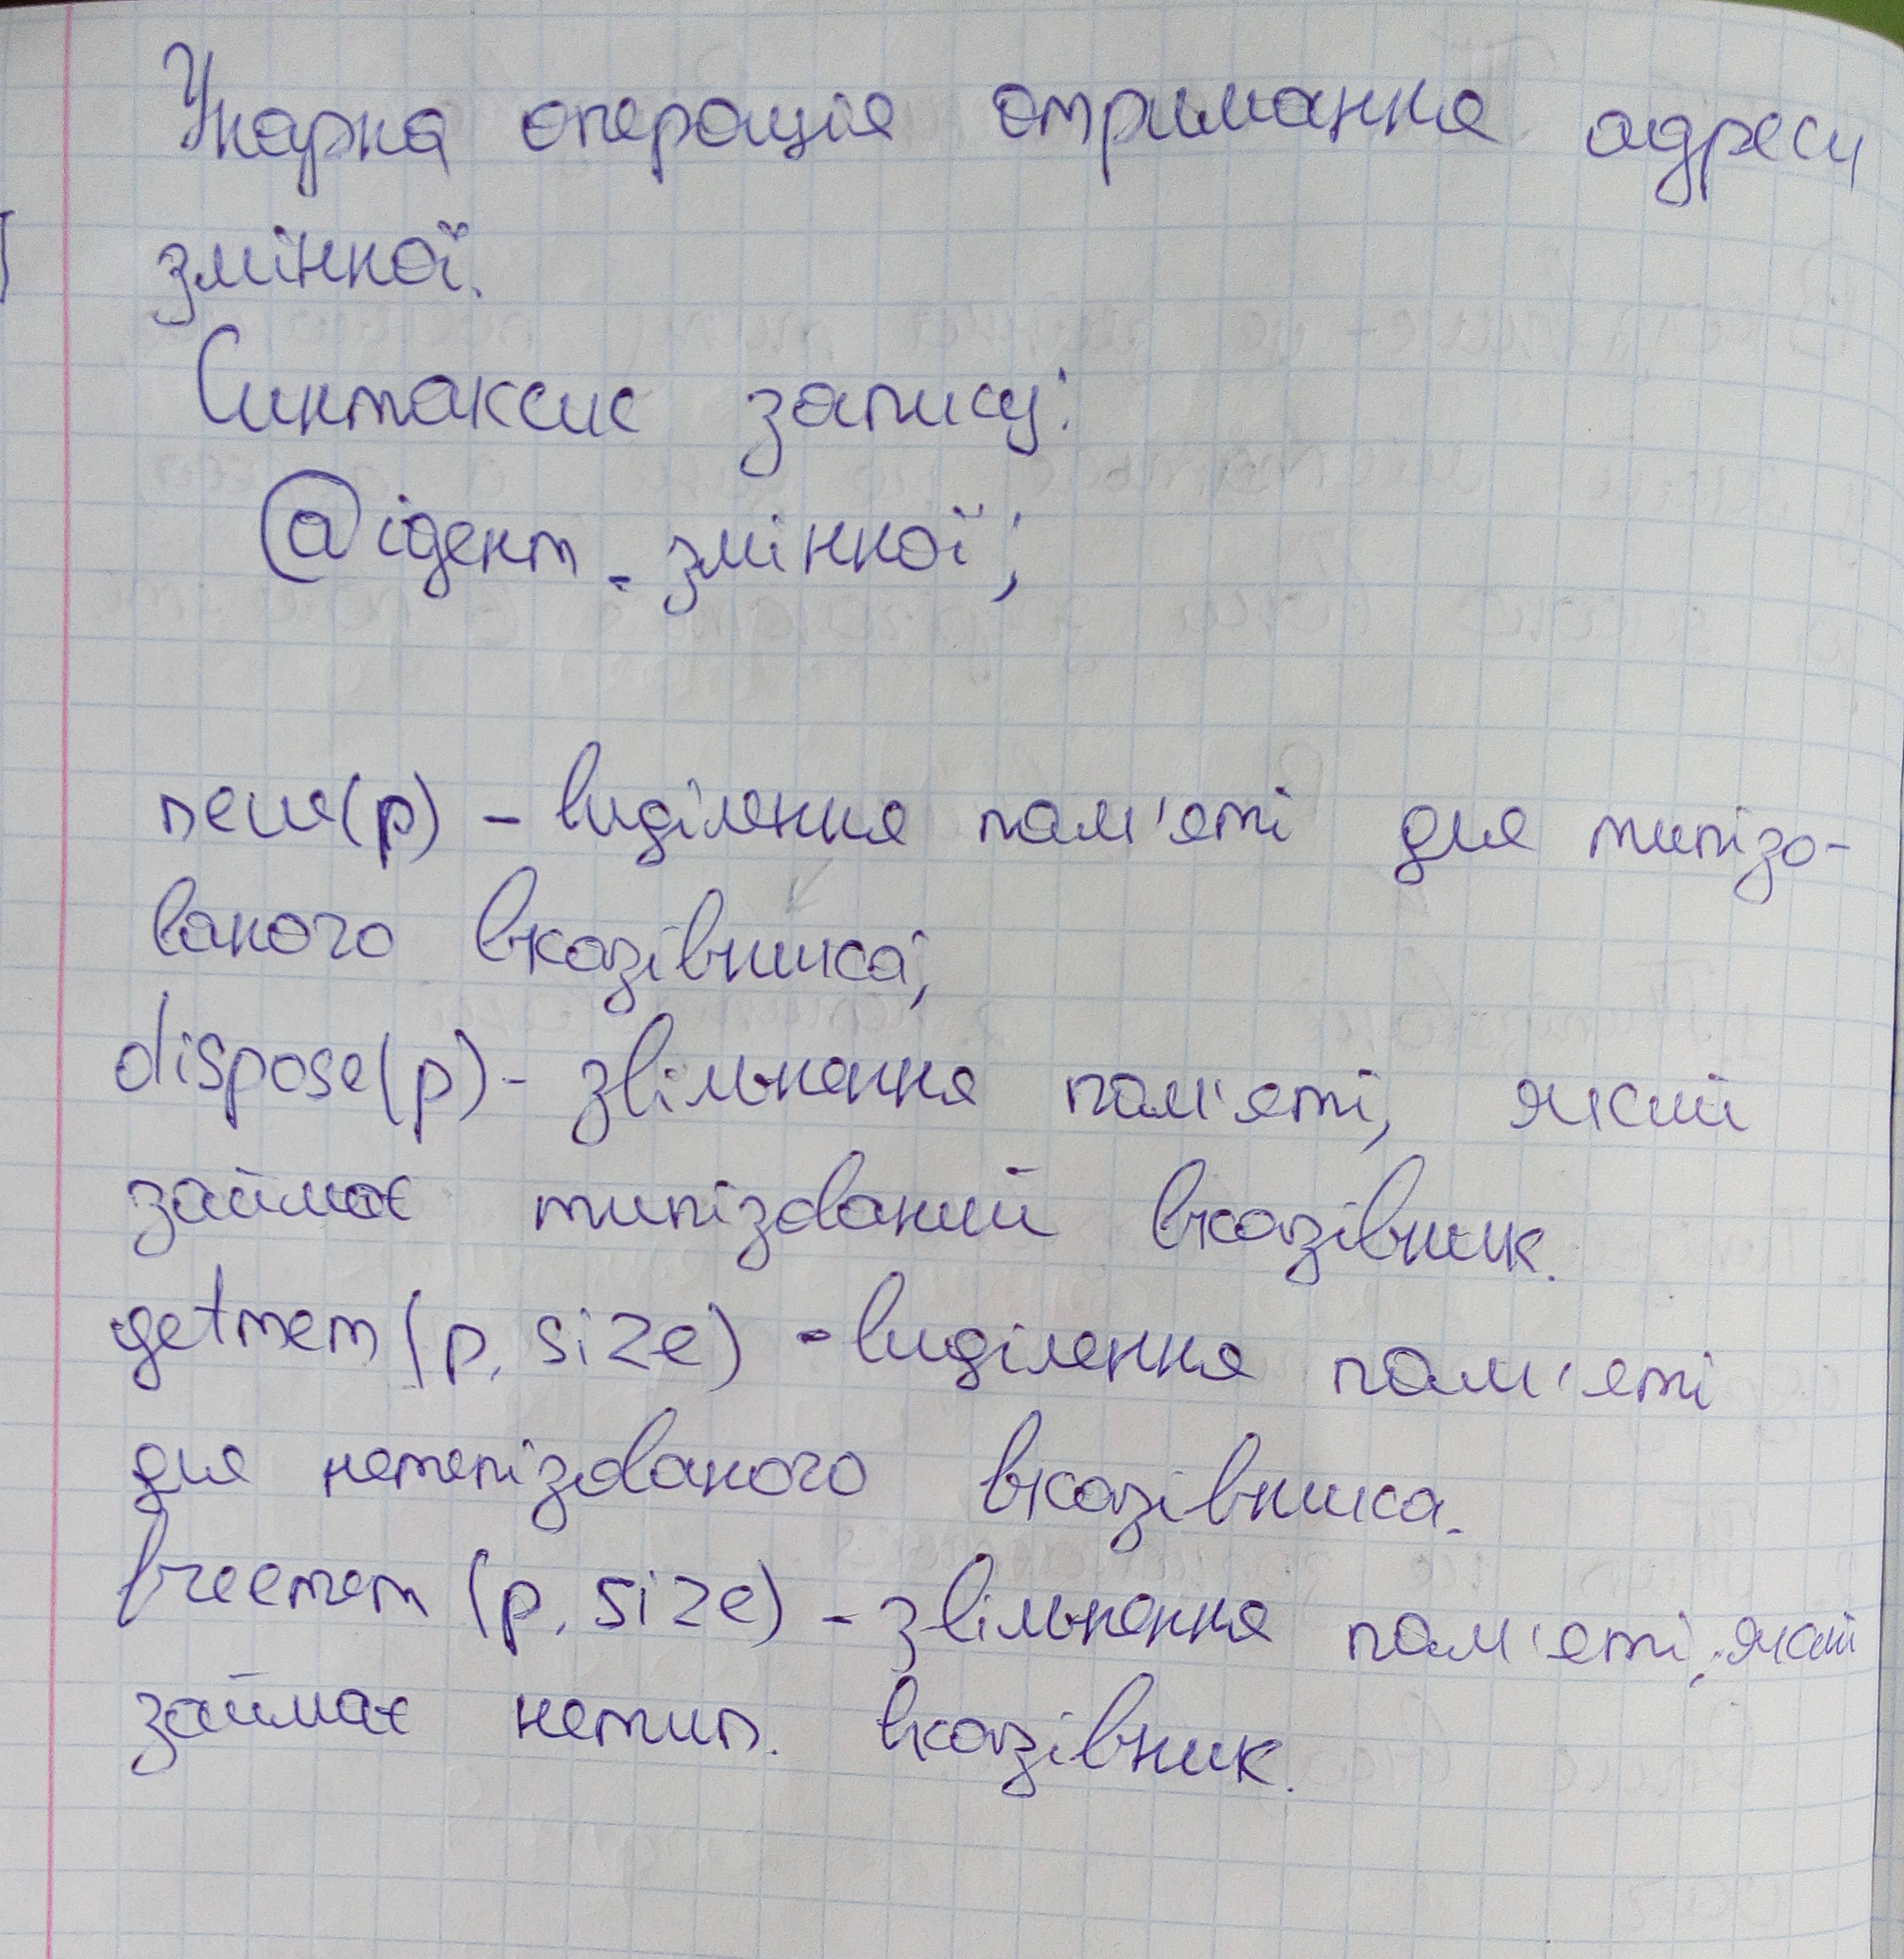 Унарна операція отримання адреси
змінної.
Синтаксис запису:
@ідент_змінної;
new(p) - виділення пам'яті для типізо-
ваного вказівника;
dispose(p) - звільнення пам'яті, який
займає типізований вказівник.
getmem(p, size) - виділення пам'яті
для нетепізованого вказівника.
freemem (p, size) - звільнення пам'яті, який
займає нетип. вказівник.